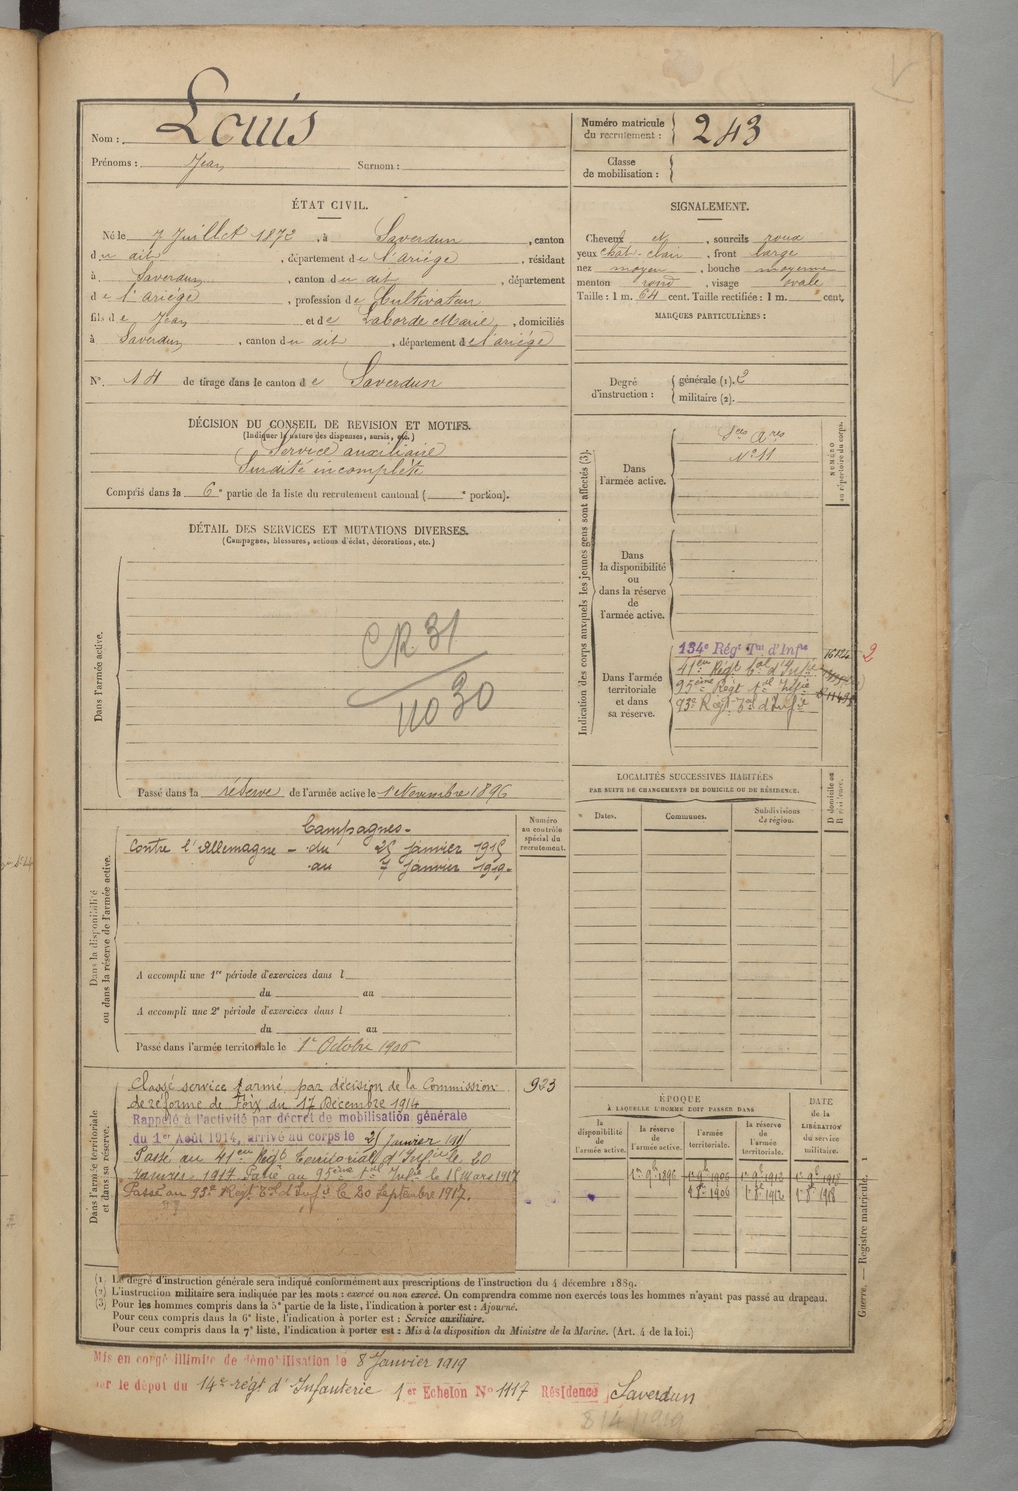 Nom : Louis
Prénoms : Jean Surnom :
Numéro matricule du recrutement : 243
Classe de mobilisation :
ÉTAT CIVIL.
Né le 7 Juillet 1872, à Saverdun, canton
du dit, département de l'ariège, résidant
à Saverdun, canton du dit, département
de l'ariège, profession de Cultivateur
fils de Jean et de Laborde Marie, domiciliés
à Saverdun, canton du dit, département de l'ariège
N° 14 de tirage dans le canton de Saverdun
SIGNALEMENT.
Cheveux et, sourcils roux
yeux chat. clair, front large
nez moyen, bouche moyenne
menton rond, visage ovale
Taille : 1 m. 64 cent. Taille rectifiée : 1 m. cent.
MARQUES PARTICULIÈRES :
Degré d'instruction : générale (1). 2
militaire (2).
DÉCISION DU CONSEIL DE REVISION ET MOTIFS.
(Indiquer la nature des dispenses, sursis, etc.)
Service auxiliaire
Surdité incomplète
Compris dans la 6e partie de la liste du recrutement cantonal ( e portion).
DÉTAIL DES SERVICES ET MUTATIONS DIVERSES.
(Campagnes, blessures, actions d'éclat, décorations, etc.)
Dans l'armée active.
CR 31
110 30
Passé dans la réserve de l'armée active le 1 Novembre 1896
Indication des corps auxquels les jeunes gens sont affectés (3).
NUMÉRO au répertoire du corps.
Dans l'armée active.
Sces Ares
N° 11
Dans la disponibilité ou dans la réserve de l'armée active.
Dans l'armée territoriale et dans sa réserve.
134e Régt Tal d'Infie
41eme Régt Tal d'Infie
95ème Régt Tal Infie
93e Régt Tal d'Infie
2
LOCALITÉS SUCCESSIVES HABITÉES
PAR SUITE DE CHANGEMENTS DE DOMICILE OU DE RÉSIDENCE.
Dates. Communes. Subdivisions de région. D domicile ou R résidence.
Dans la disponibilité ou dans la réserve de l'armée active.
Numéro au contrôle spécial du recrutement.
Campagnes.
Contre l'Allemagne - du 25 janvier 1915
au 7 janvier 1919.
A accompli une 1re période d'exercices dans l
du au
A accompli une 2e période d'exercices dans l
du au
Passé dans l'armée territoriale le 1er Octobre 1906
Dans l'armée territoriale et dans sa réserve.
923
Classé service armé par décision de la Commission
de réforme de Foix du 17 Décembre 1914
Rappelé à l'activité par décret de mobilisation générale
du 1er Août 1914, arrivé au corps le 25 janvier 1915
Passé au 41eme Régt territorial d'Infie le 20
janvier 1917. Passé au 95ème Tal Infie le 15 Mars 1917
Passé au 93e Régt Tal d'Infie le 20 Septembre 1917.
ÉPOQUE
À LAQUELLE L'HOMME DOIT PASSER DANS
la disponibilité de l'armée active. la réserve de l'armée active. l'armée territoriale. la réserve de l'armée territoriale.
DATE de la LIBÉRATION du service militaire.
1er 9bre 1896 1er 9bre 1906 1er 9bre 1912 1er 9bre 1918
1er 8bre 1906 1er 8bre 1912 1er 8bre 1918
(1) Le degré d'instruction générale sera indiqué conformément aux prescriptions de l'instruction du 4 décembre 1889.
(2) L'instruction militaire sera indiquée par les mots : exercé ou non exercé. On comprendra comme non exercés tous les hommes n'ayant pas passé au drapeau.
(3) Pour les hommes compris dans la 5e partie de la liste, l'indication à porter est : Ajourné.
Pour ceux compris dans la 6e liste, l'indication à porter est : Service auxiliaire.
Pour ceux compris dans la 7e liste, l'indication à porter est : Mis à la disposition du Ministre de la Marine. (Art. 4 de la loi.)
Guerre. — Registre matricule. 1
Mis en congé illimité de démobilisation le 8 Janvier 1919
par le dépôt du 14e régt d'Infanterie 1er Echelon N° 1117 Résidence Saverdun
8/4/1919